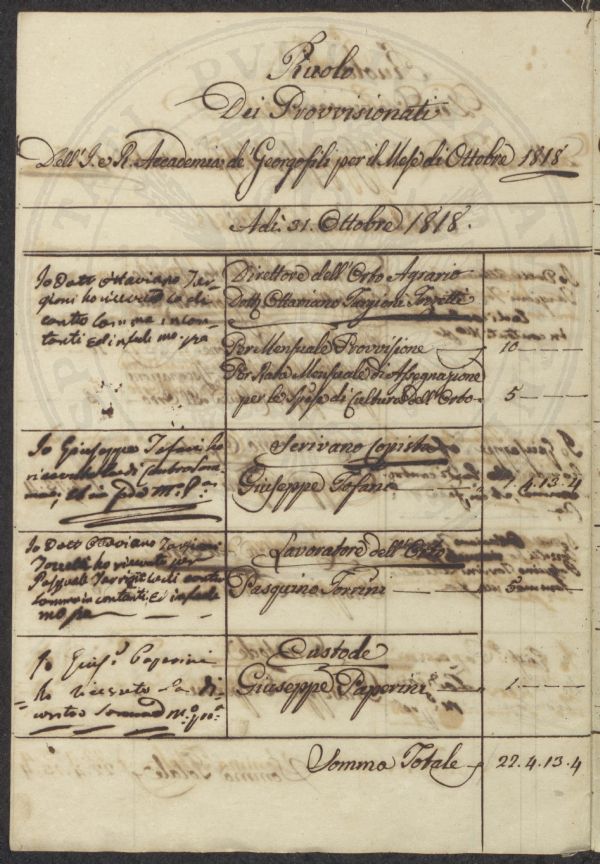 Ruolo
Dei Provvisionati
Dell'I. e R. Accademia de' Georgofili per il Mese di Ottobre 1818
Adì 31. Ottobre 1818.
Io Dott Ottaviano Tar-
gioni ho ricevuto la di
contro somma in con-
tanti ed in fede mo. pa
Direttore dell'Orto Agrario
Dott. Ottaviano Targioni Tozzetti
Per Mensuale Provvisione 10 — — —
Per Rata Mensuale di Assegnazione
per le Spese di Cultura dell'Orto 5 — — —
Io Giuseppe Tofani ho
Scrivano Copista
Giuseppe Tofani 1. 4. 13. 4
Io Dott Ottaviano Targioni
Tozzetti ho ricevuto per
Pasquale Torrini la di contro
somma in contanti ed in fede
mo pa
Lavoratore dell'Orto
Pasquino Torrini 5 — — —
Io Giusp.e Paperini
ho ricevuto la di
contro somma Mo. po.
Custode
Giuseppe Paperini 1 — — —
Somma Totale 22. 4. 13. 4